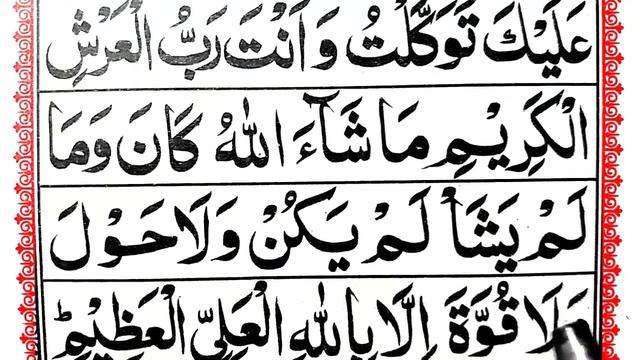 عَلَيْكَ تَوَكَّلْتُ وَاَنْتَ رَبُّ الْعَرْشِ
الْكَرِيْمِ مَا شَآءَ اللهُ كَانَ وَمَا
لَمْ يَشَأْ لَمْ يَكُنْ وَلَا حَوْلَ
وَلَا قُوَّةَ اِلَّا بِاللهِ الْعَلِيِّ الْعَظِيْمِؕ